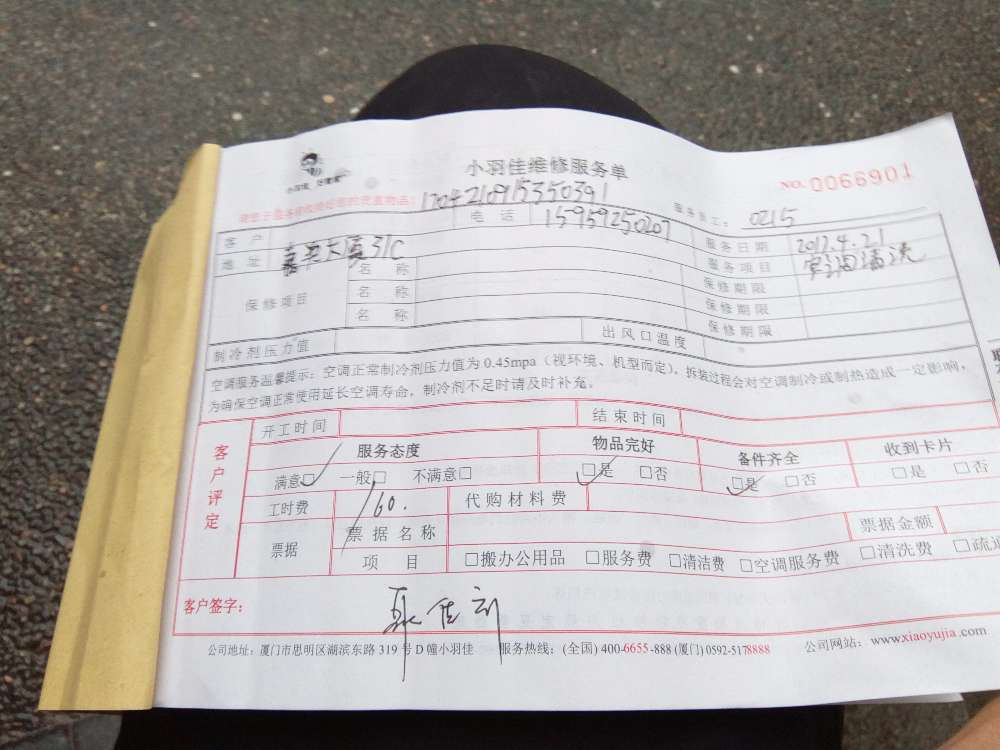 小羽佳维修服务单
NO.0066901
1704210915350391
服务员工: 0215
客户 电话 15959250207 服务日期 2017.4.21
地址 嘉华大厦31C 服务项目 空调清洗
保修项目 名称 保修期限
名称 保修期限
名称 保修期限
制冷剂压力值 出风口温度
空调服务温馨提示: 空调正常制冷剂压力值为 0.45mpa (视环境、机型而定), 拆装过程会对空调制冷或制热造成一定影响,
为确保空调正常使用延长空调寿命, 制冷剂不足时请及时补充。
客户评定 开工时间 结束时间
服务态度 物品完好 备件齐全 收到卡片
满意□ 一般□ 不满意□ □是 □否 □是 □否 □是 □否
工时费 160. 代购材料费
票据 票据名称 票据金额
项目 □搬办公用品 □服务费 □清洁费 □空调服务费 □清洗费 □疏通
客户签字:
公司地址: 厦门市思明区湖滨东路 319 号 D 幢小羽佳 服务热线: (全国) 400-6655-888 (厦门) 0592-5178888 公司网站: www.xiaoyujia.com